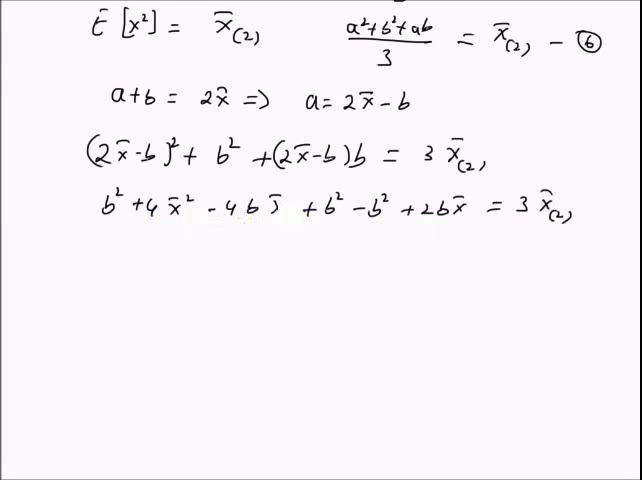 E [x²] = x̄₍₂₎   (a²+b²+ab)/3 = x̄₍₂₎ - ⑥
a+b = 2x̄ => a = 2x̄ - b
(2x̄-b)² + b² + (2x̄-b)b = 3 x̄₍₂₎
b² + 4x̄² - 4b + b² - b² + 2bx̄ = 3 x̄₍₂₎